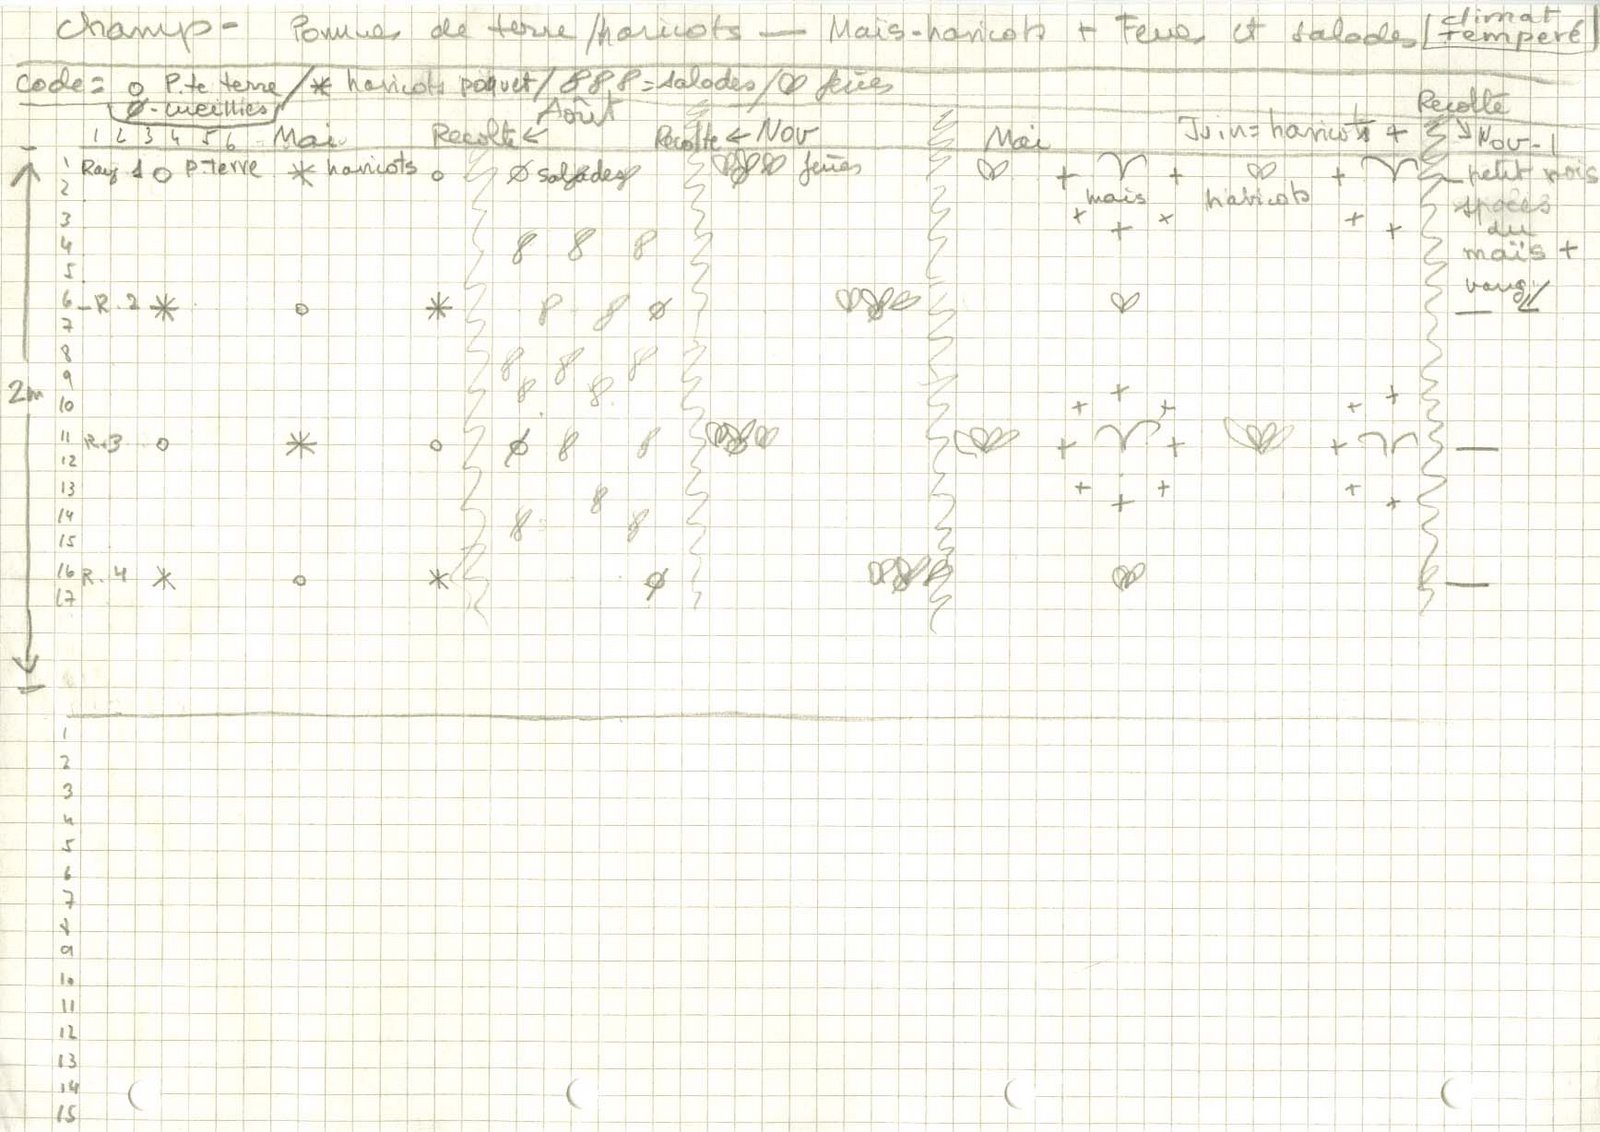 Champ - Pommes de terre/haricots — Maïs-haricots + Feves et salades [climat tempéré]
code = o P. te terre / * haricots paquet / 8 8 8 = salades / fèves
ø - cueillies
1 2 3 4 5 6 Mai Recolte ← Août Recolte ← Nov Mai Juin = haricots + Recolte Nov-1
1 Rang 1 o P.terre * haricots o ø salades fèves + maïs + haricots + petit pois
2
3
4 8 8 8 du
5 maïs +
6 R. 2 * o * 8 8 ø
7
8 8 8 8
9 8 8
2m
10
11 R. 3 o * o ø 8 8 + + +
12
13 8
14 8 8
15
16 R. 4 * o * ø
17
1
2
3
4
5
6
7
8
9
10
11
12
13
14
15